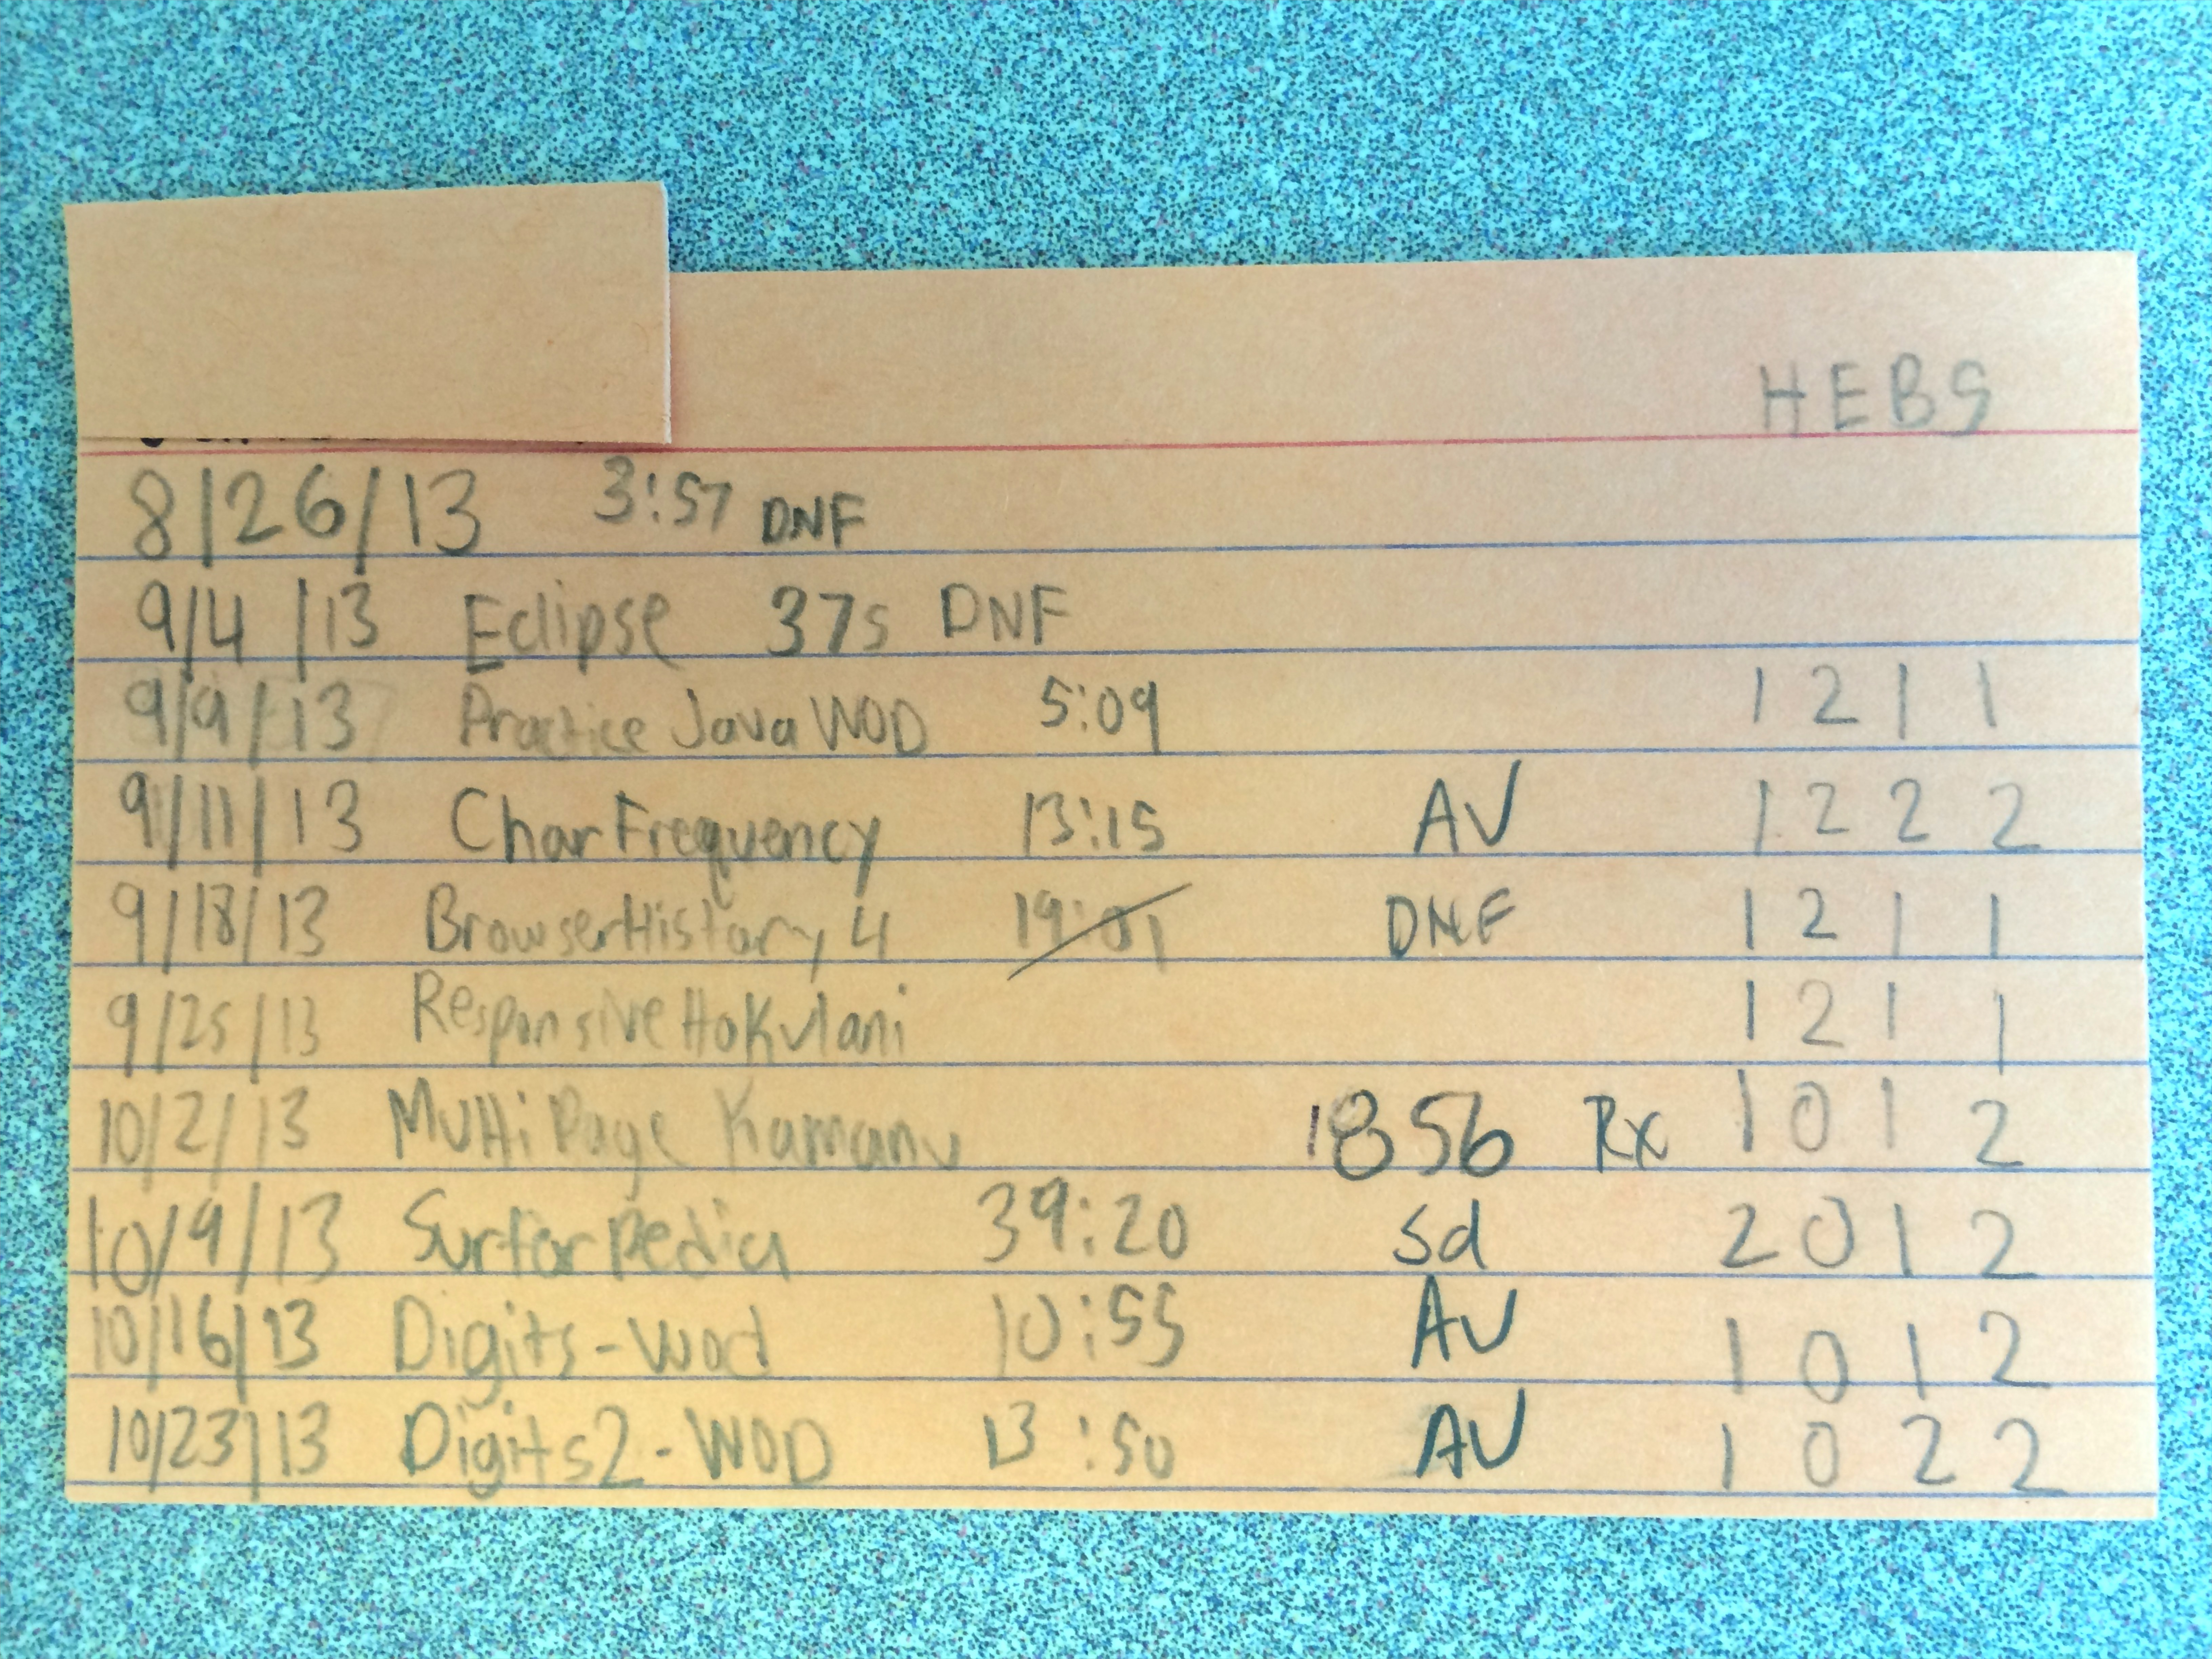 HEBS
8/26/13 3:57 DNF
9/4/13 Eclipse 37s DNF
9/9/13 Practice Java WOD 5:09 1 2 1 1
9/11/13 CharFrequency 13:15 AV 1 2 2 2
9/18/13 BrowserHistory 4 19:01 DNF 1 2 1 1
9/25/13 ResponsiveHoKulani 1 2 1 1
10/2/13 MultiPage Kamanu 1856 Rx 1 0 1 2
10/9/13 Surferpedia 39:20 Sd 2 0 1 2
10/16/13 Digits-Wod 10:55 AV 1 0 1 2
10/23/13 Digits2-WOD 13:50 AV 1 0 2 2